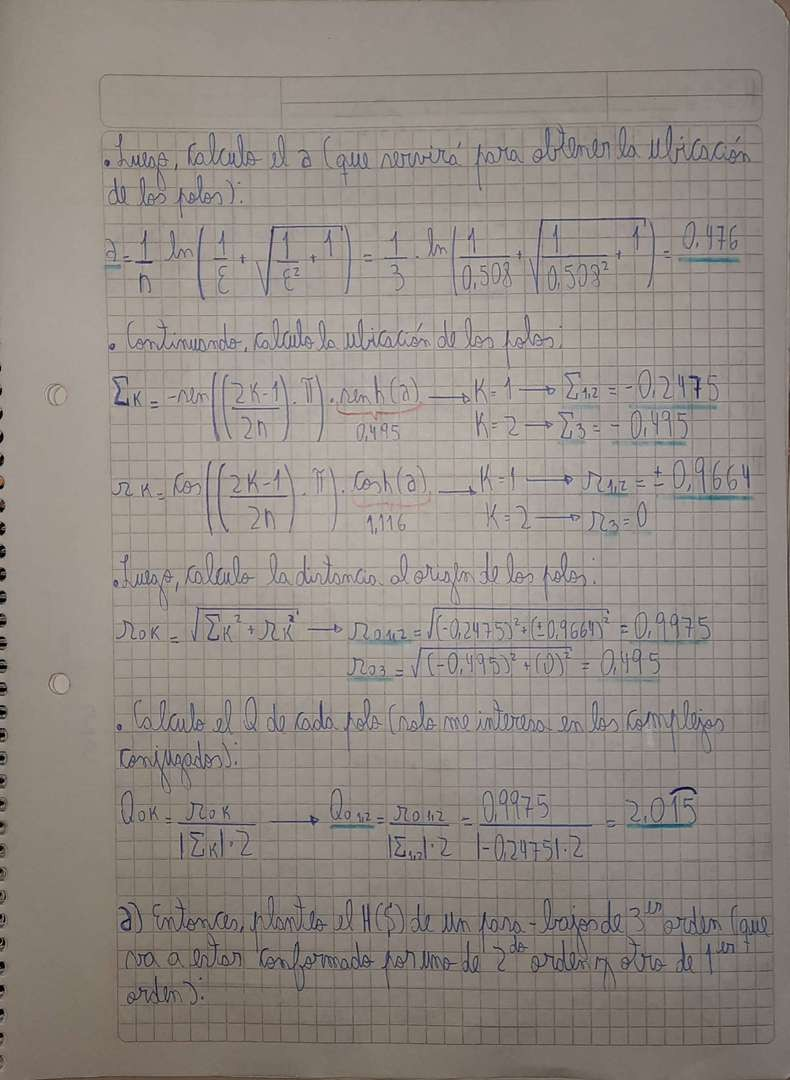 • Luego, calculo el a (que servirá para obtener la ubicación
de los polos):
a = 1/n ln(1/ε + √(1/ε² + 1)) = 1/3 · ln(1/0,508 + √(1/0,508² + 1)) = 0,476
• Continuando, calculo la ubicación de los polos:
Σk = -sen((2k-1/2n) · π) · senh(a) → k=1 → Σ1,2 = -0,2475
0,495 k=2 → Σ3 = -0,495
Ωk = cos((2k-1/2n) · π) · cosh(a) → k=1 → Ω1,2 = ±0,9664
1,116 k=2 → Ω3 = 0
• Luego, calculo la distancia al origen de los polos:
Ω0k = √(Σk² + Ωk²) → Ω01,2 = √((-0,2475)² + (±0,9664)²) = 0,9975
Ω03 = √((-0,495)² + (0)²) = 0,495
• Calculo el Q de cada polo (solo me interesa en los complejos
conjugados):
Q0k = Ω0k/|Σk|·2 → Q01,2 = Ω01,2/|Σ1,2|·2 = 0,9975/|-0,2475|·2 = 2,015
a) Entonces, planteo el H($) de un pasa-bajos de 3er orden (que
va a estar conformado por uno de 2do orden y otro de 1er
orden):